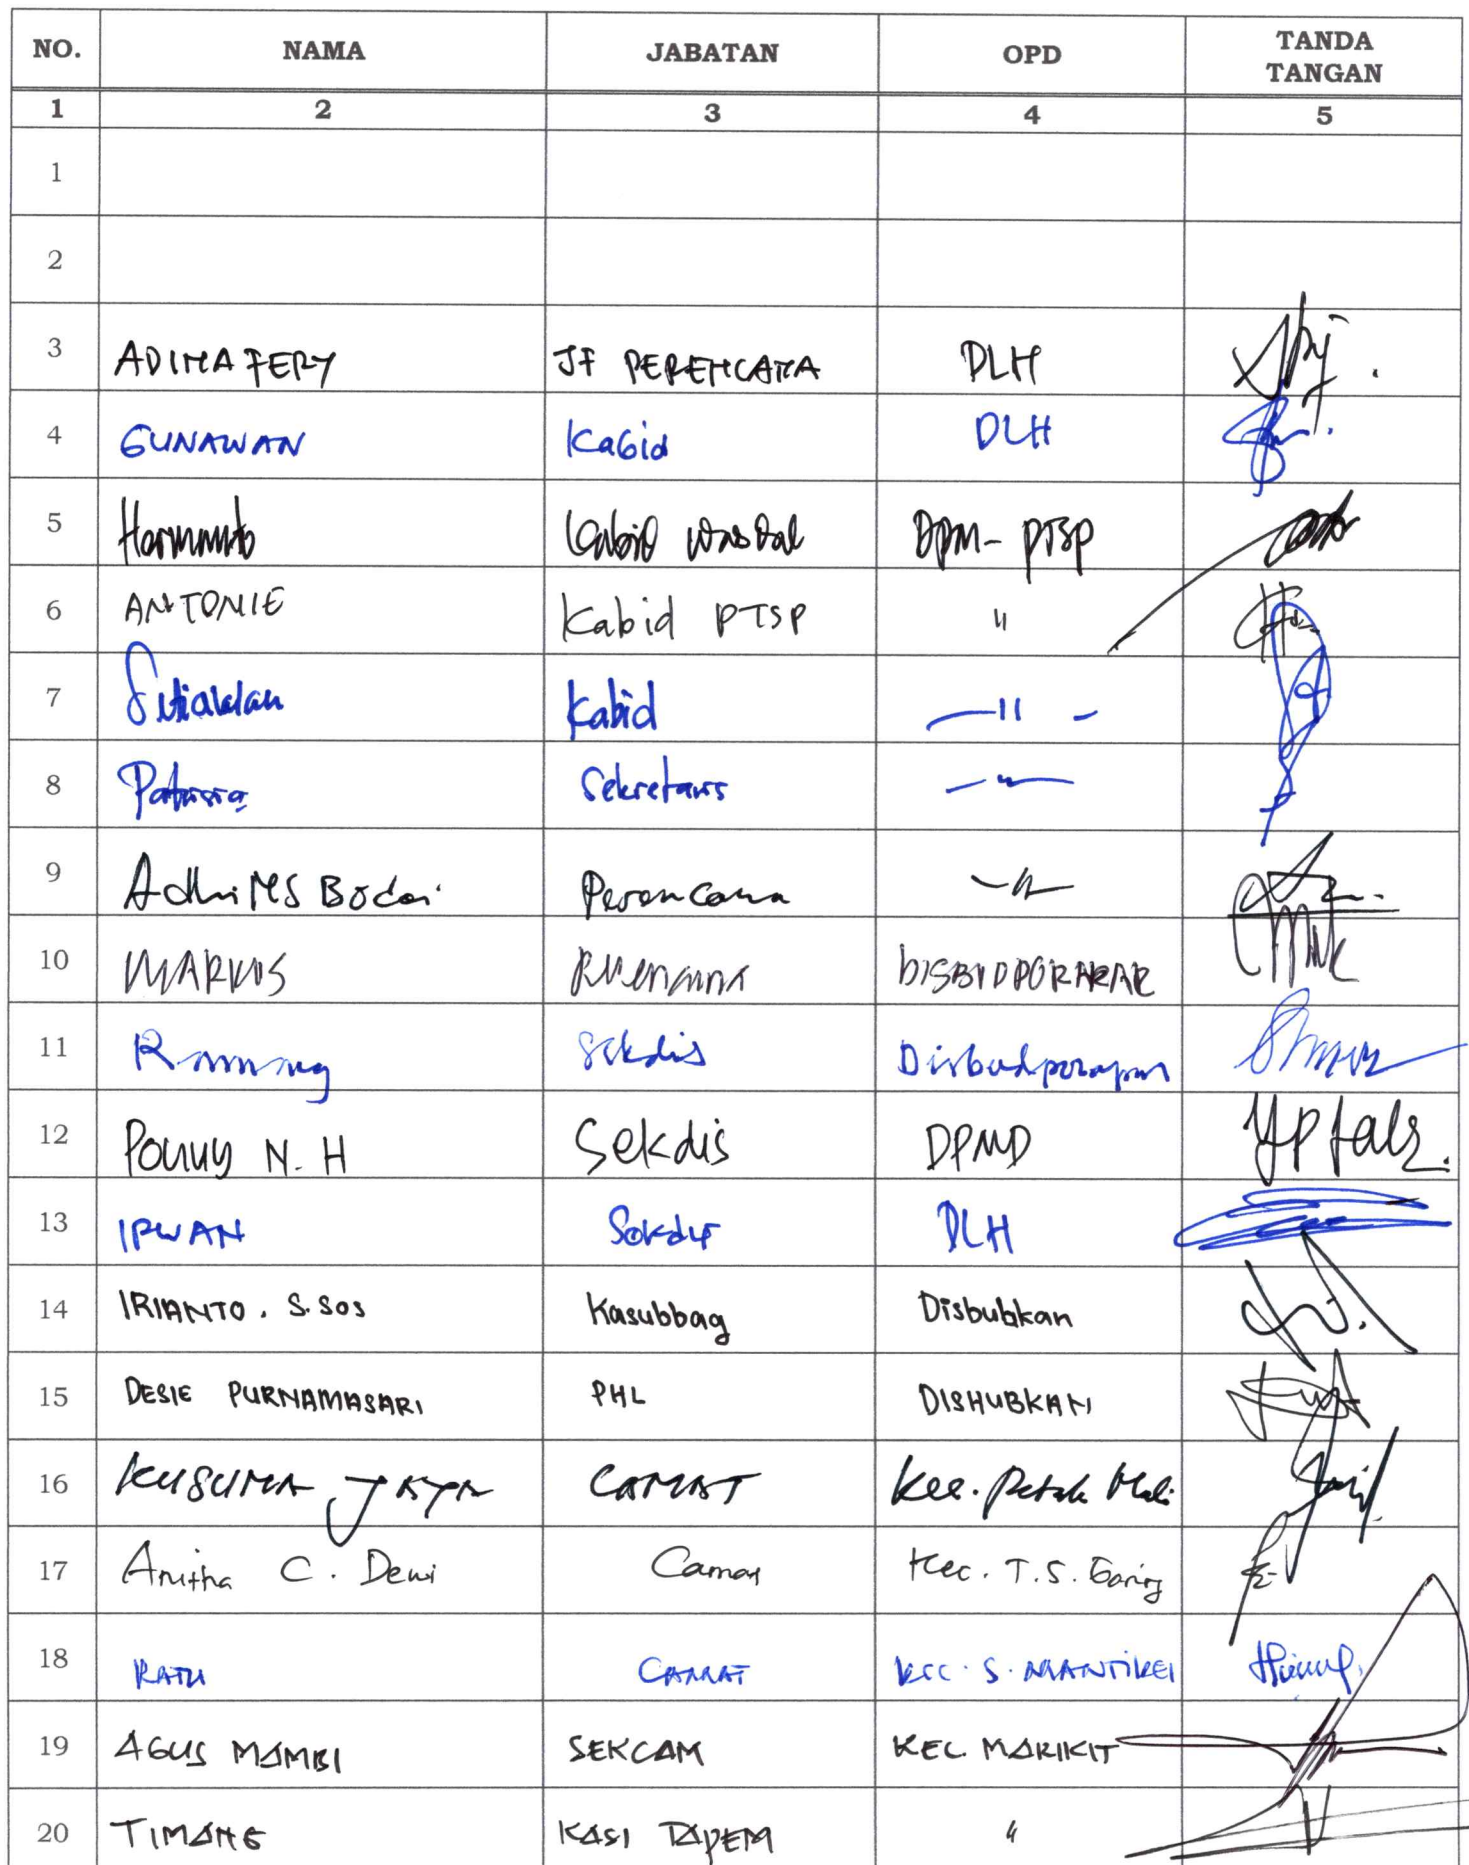 NO. NAMA JABATAN OPD TANDA TANGAN
1 2 3 4 5
1
2
3 ADIMA FERY JF PERENCANA DLH
4 GUNAWAN Kabid DLH
5 Harmanto Kabid Wasdal DPM-PTSP
6 ANTONIE Kabid PTSP "
7 Setiawan Kabid — " —
8 Patrisia Sekretaris — " —
9 Adhi MS Perencana — " —
10 MARKUS DISBUDPORAPAR
11 Sekdis Disbudporapar
12 N. H Sekdis DPMD
13 IRWAN Sekdis DLH
14 IRIANTO. S.Sos Kasubbag Disbubkan
15 DESIE PURNAMASARI PHL DISHUBKAN
16 KUSUMA JAYA CAMAT Kec. Petak Mali
17 Anitha C. Dewi Camat Kec. T.S. Garing
18 RATU CAMAT KEC. S. MANTIKEI
19 AGUS MAMBI SEKCAM KEC. MARIKIT
20 TIMANG KASI TAPEM "